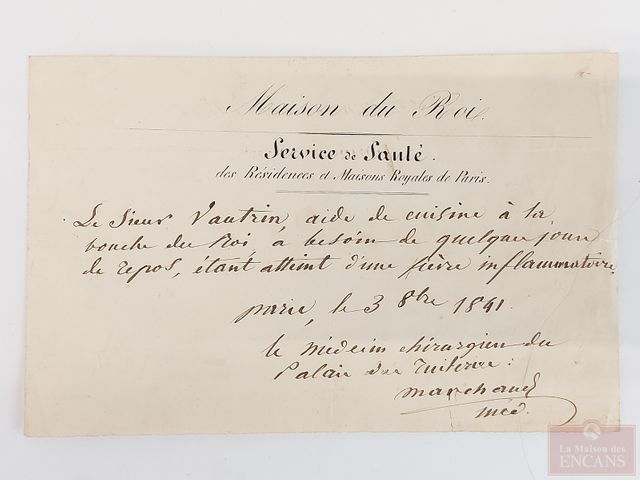 Maison du Roi.
Service de Santé.
des Résidences et Maisons Royales de Paris.
Le Sieur Vautrin, aide de cuisine à la
bouche du Roi, à besoin de quelque jour
de repos, étant atteint d'une fièvre inflammatoire.
paris, le 3 8bre 1841.
le médecin chirurgien du
Palais des Tuilerie :
marchand
méd.
La Maison des
ENCANS